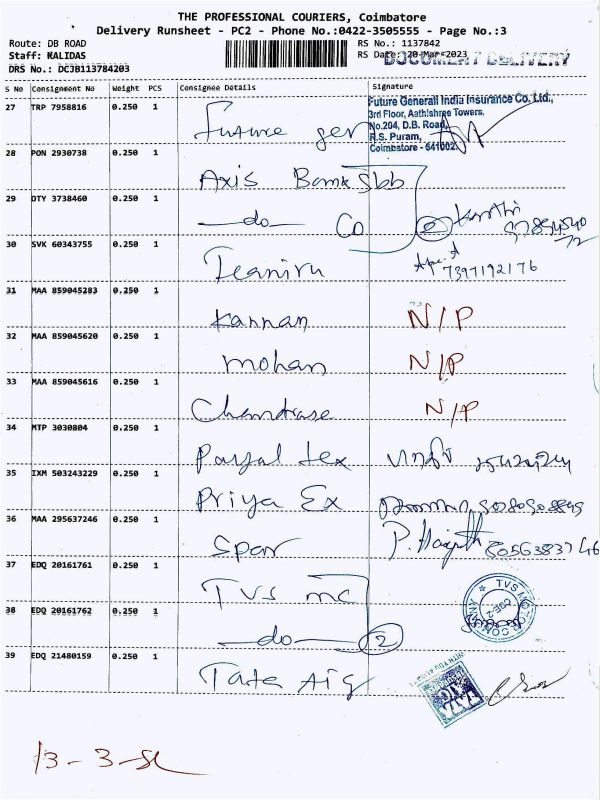 THE PROFESSIONAL COURIERS, Coimbatore
Delivery Runsheet - PC2 - Phone No.:0422-3505555 - Page No.:3
Route: DB ROAD
Staff: KALIDAS
DRS No.: DCJB113784203
RS No.: 1137842
RS Date: 20-Mar-2023
DOCUMENT DELIVERY
S No Consignment No Weight PCS Consignee Details Signature
27 TRP 7958816 0.250 1 Future gen
Future Generali India Insurance Co. Ltd.,
3rd Floor, Aathishree Towers,
No.204, D.B. Road,
R.S. Puram,
Coimbatore - 641002
28 PON 2930738 0.250 1 Axis Bank Sbb
29 DTY 3738460 0.250 1 do Co 2
30 SVK 60343755 0.250 1 7397192176
31 MAA 859045283 0.250 1 Kannan N/P
32 MAA 859045620 0.250 1 Mohan N/P
33 MAA 859045616 0.250 1 N/P
34 MTP 3030804 0.250 1 Payal tex
35 IXM 503243229 0.250 1 Priya Ex
36 MAA 295637246 0.250 1 Spar P.
37 EDQ 20161761 0.250 1 TVS mc
38 EDQ 20161762 0.250 1 do 2
TVS MOTOR COMPANY
39 EDQ 21480159 0.250 1 Tata Aig
13-3-